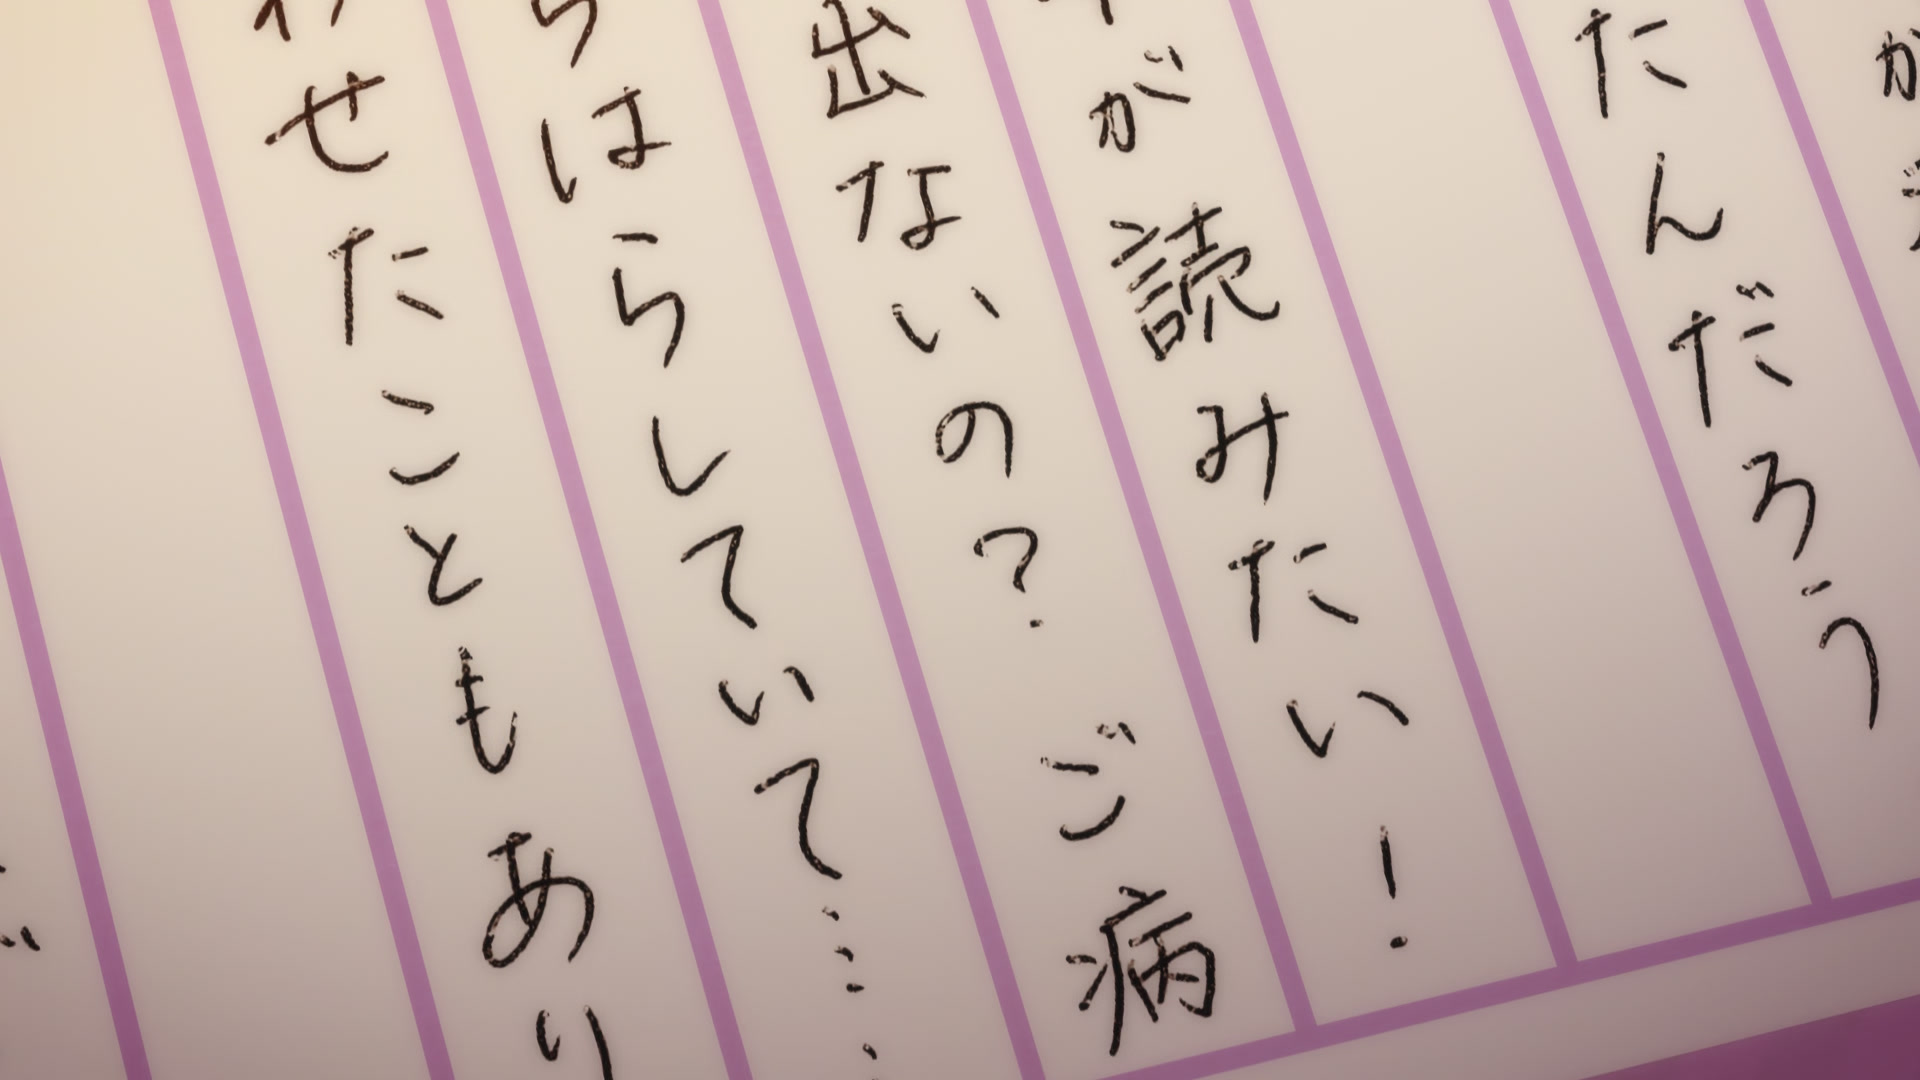 か
たんだろう
が読みたい！
出ないの？ご病
らはらしていて……
わせたこともあり